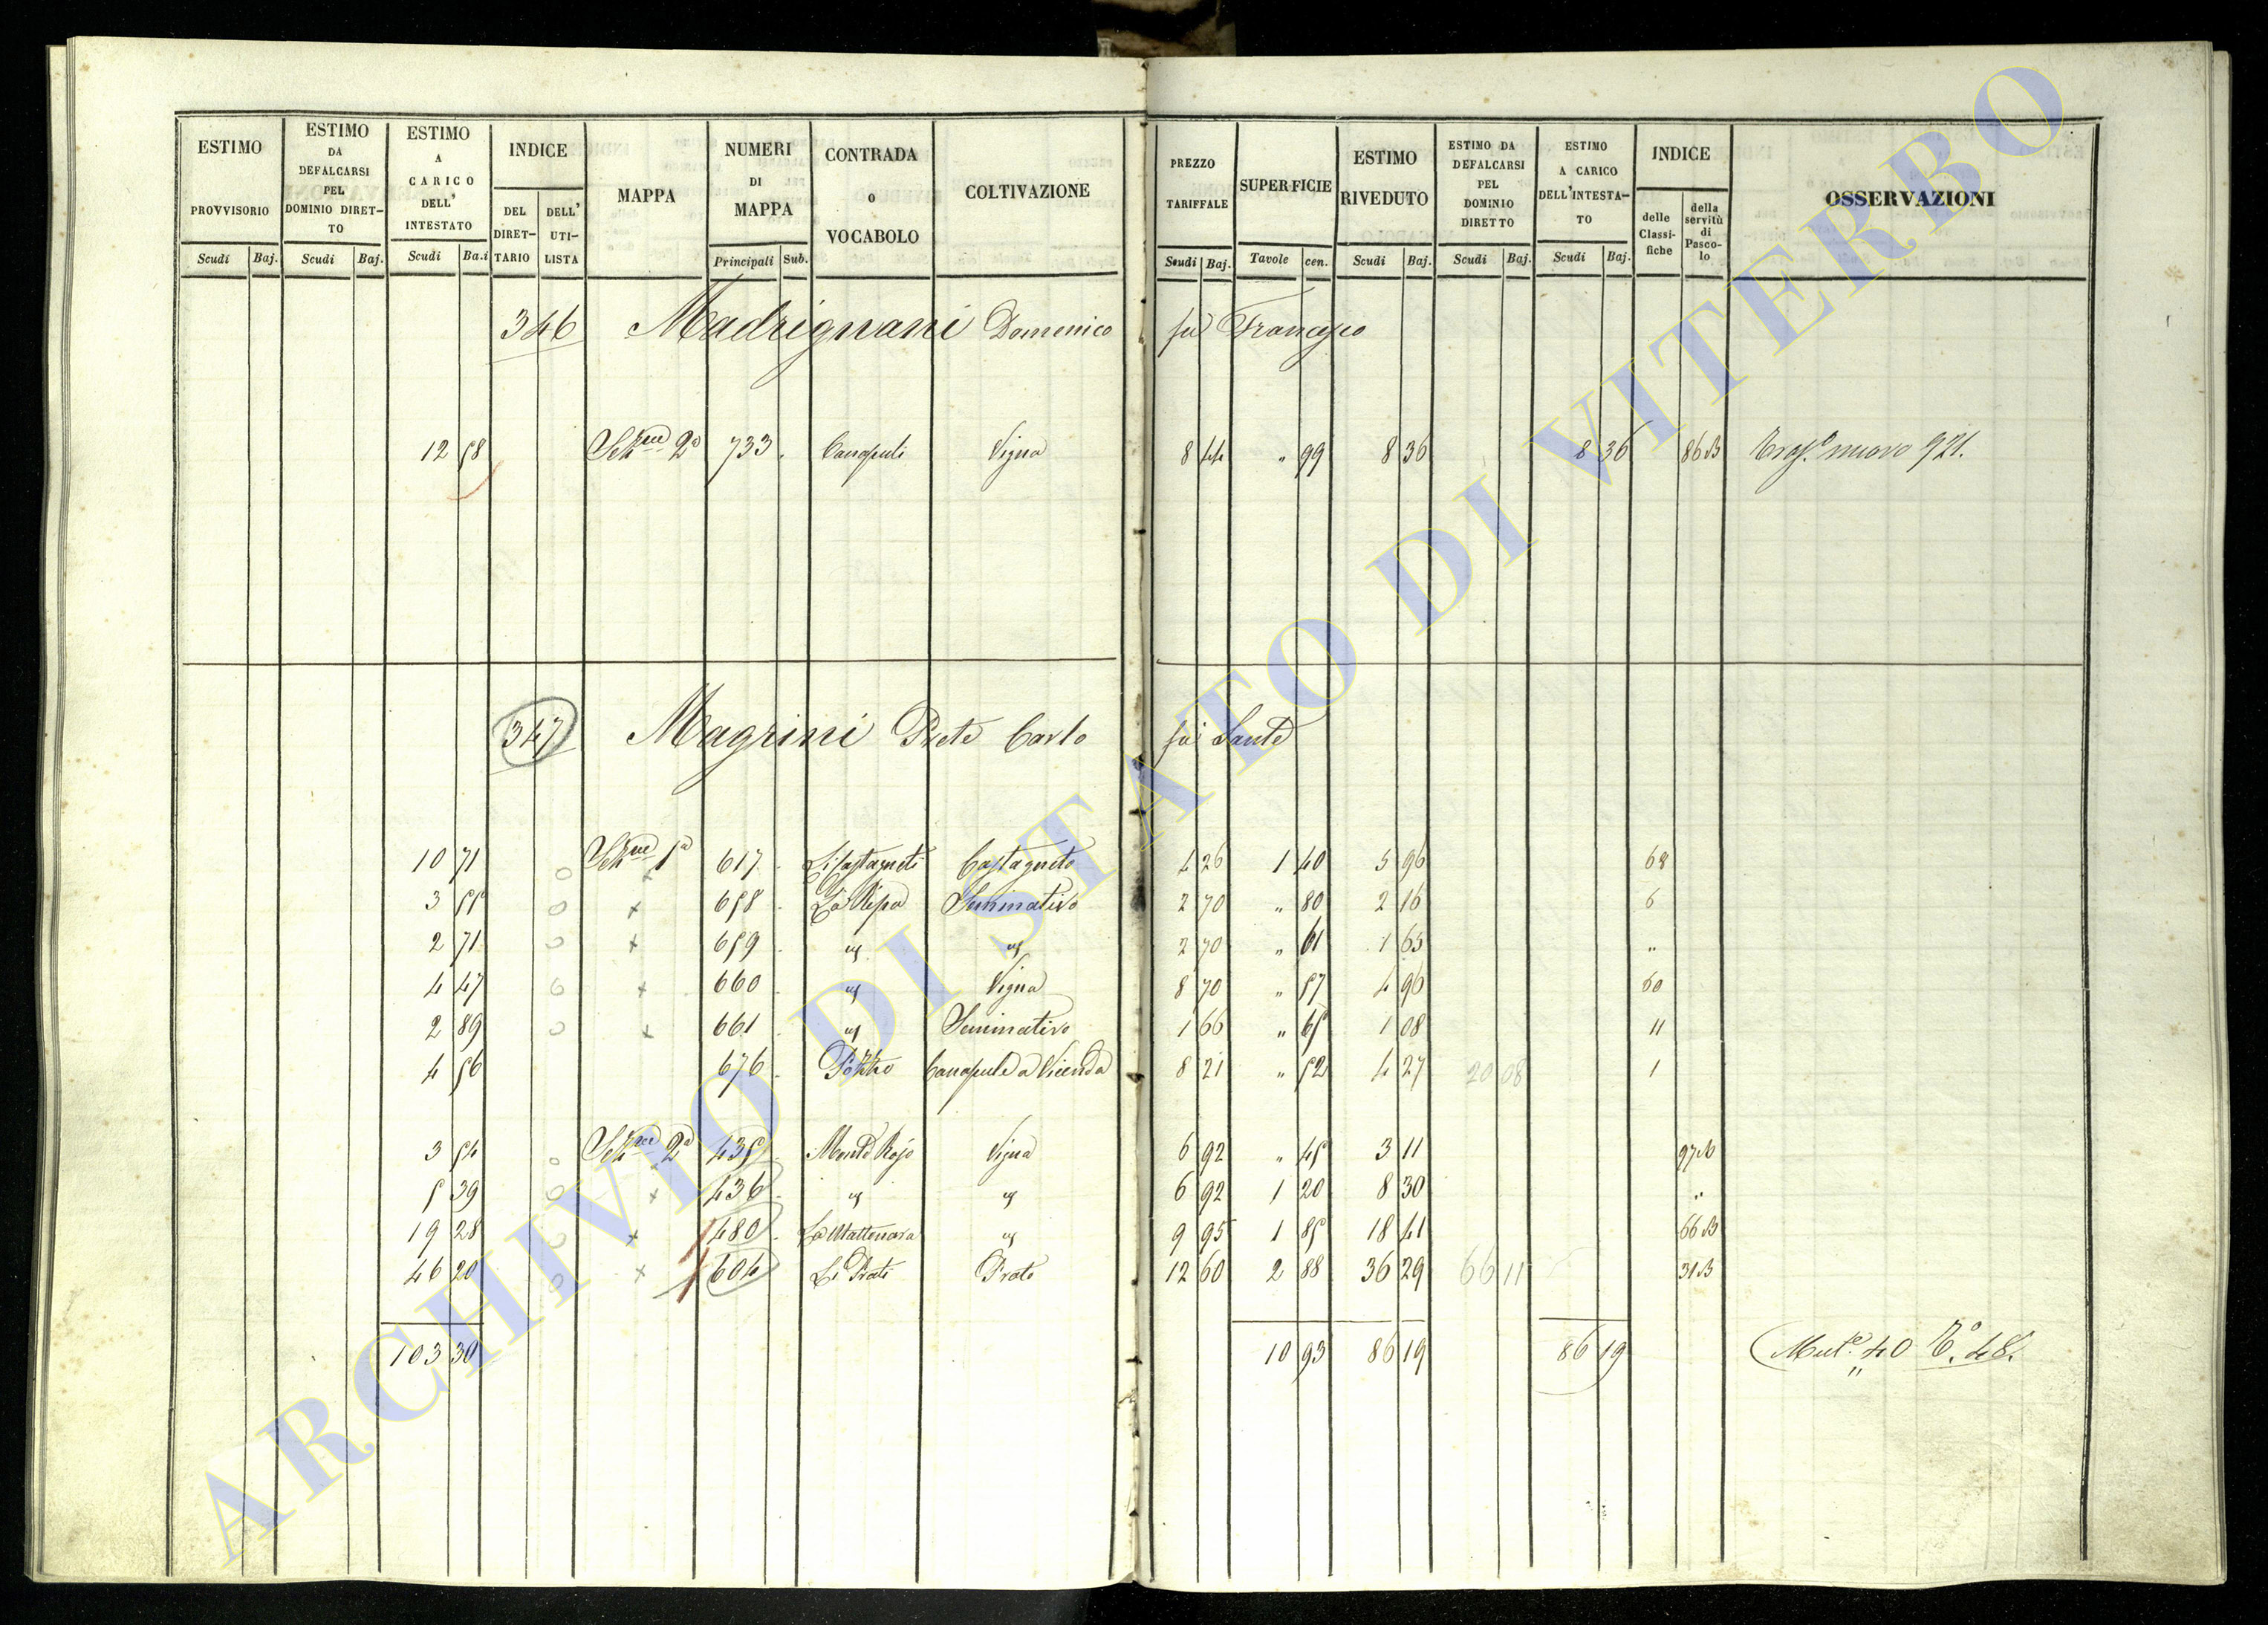 ESTIMO PROVVISORIO Scudi Baj.
ESTIMO DA DEFALCARSI PEL DOMINIO DIRET-TO Scudi Baj.
ESTIMO A CARICO DELL' INTESTATO Scudi Ba.i
INDICE DEL DIRET-TARIO DELL' UTI-LISTA
MAPPA
NUMERI DI MAPPA Principali Sub.
CONTRADA o VOCABOLO
COLTIVAZIONE
PREZZO TARIFFALE Scudi Baj.
SUPERFICIE Tavole cen.
ESTIMO RIVEDUTO Scudi Baj.
ESTIMO DA DEFALCARSI PEL DOMINIO DIRETTO Scudi Baj.
ESTIMO A CARICO DELL'INTESTA-TO Scudi Baj.
INDICE delle Classi-fiche della servitù di Pasco-lo
OSSERVAZIONI
346 Madrignani Domenico fù Francesco
12 58 Sez.ne 2a 733 Canapuli Vigna 8 44 " 99 8 36 8 36 86 B nuovo 921.
347 Magrini Prete Carlo fù Sante
10 71 Sez.ne 1a 617 Li Castagneti Castagneto 4 26 1 40 5 96 68
3 55 x 658 La Ripa Seminativo 2 70 " 80 2 16 6
2 71 x 659 " " 2 70 " 61 1 65 "
4 47 x 660 " Vigna 8 70 " 57 4 96 50
2 89 x 661 " Seminativo 1 66 " 65 1 08 11
4 56 676 Pozzo Canapule a Vicenda 8 21 " 52 4 27 20 08 1
3 54 Sez.ne 2a 435 Monte Rojo Vigna 6 92 " 45 3 11 97
5 39 x 436 " " 6 92 1 20 8 30 "
19 28 x 480 La Mattonara " 9 95 1 85 18 41 66 B
46 20 x 604 Li Prati Prato 12 60 2 88 36 29 66 11 31 B
103 30 10 93 86 19 86 19 Mut.e 40 T.o 48.
ARCHIVIO DI STATO DI VITERBO